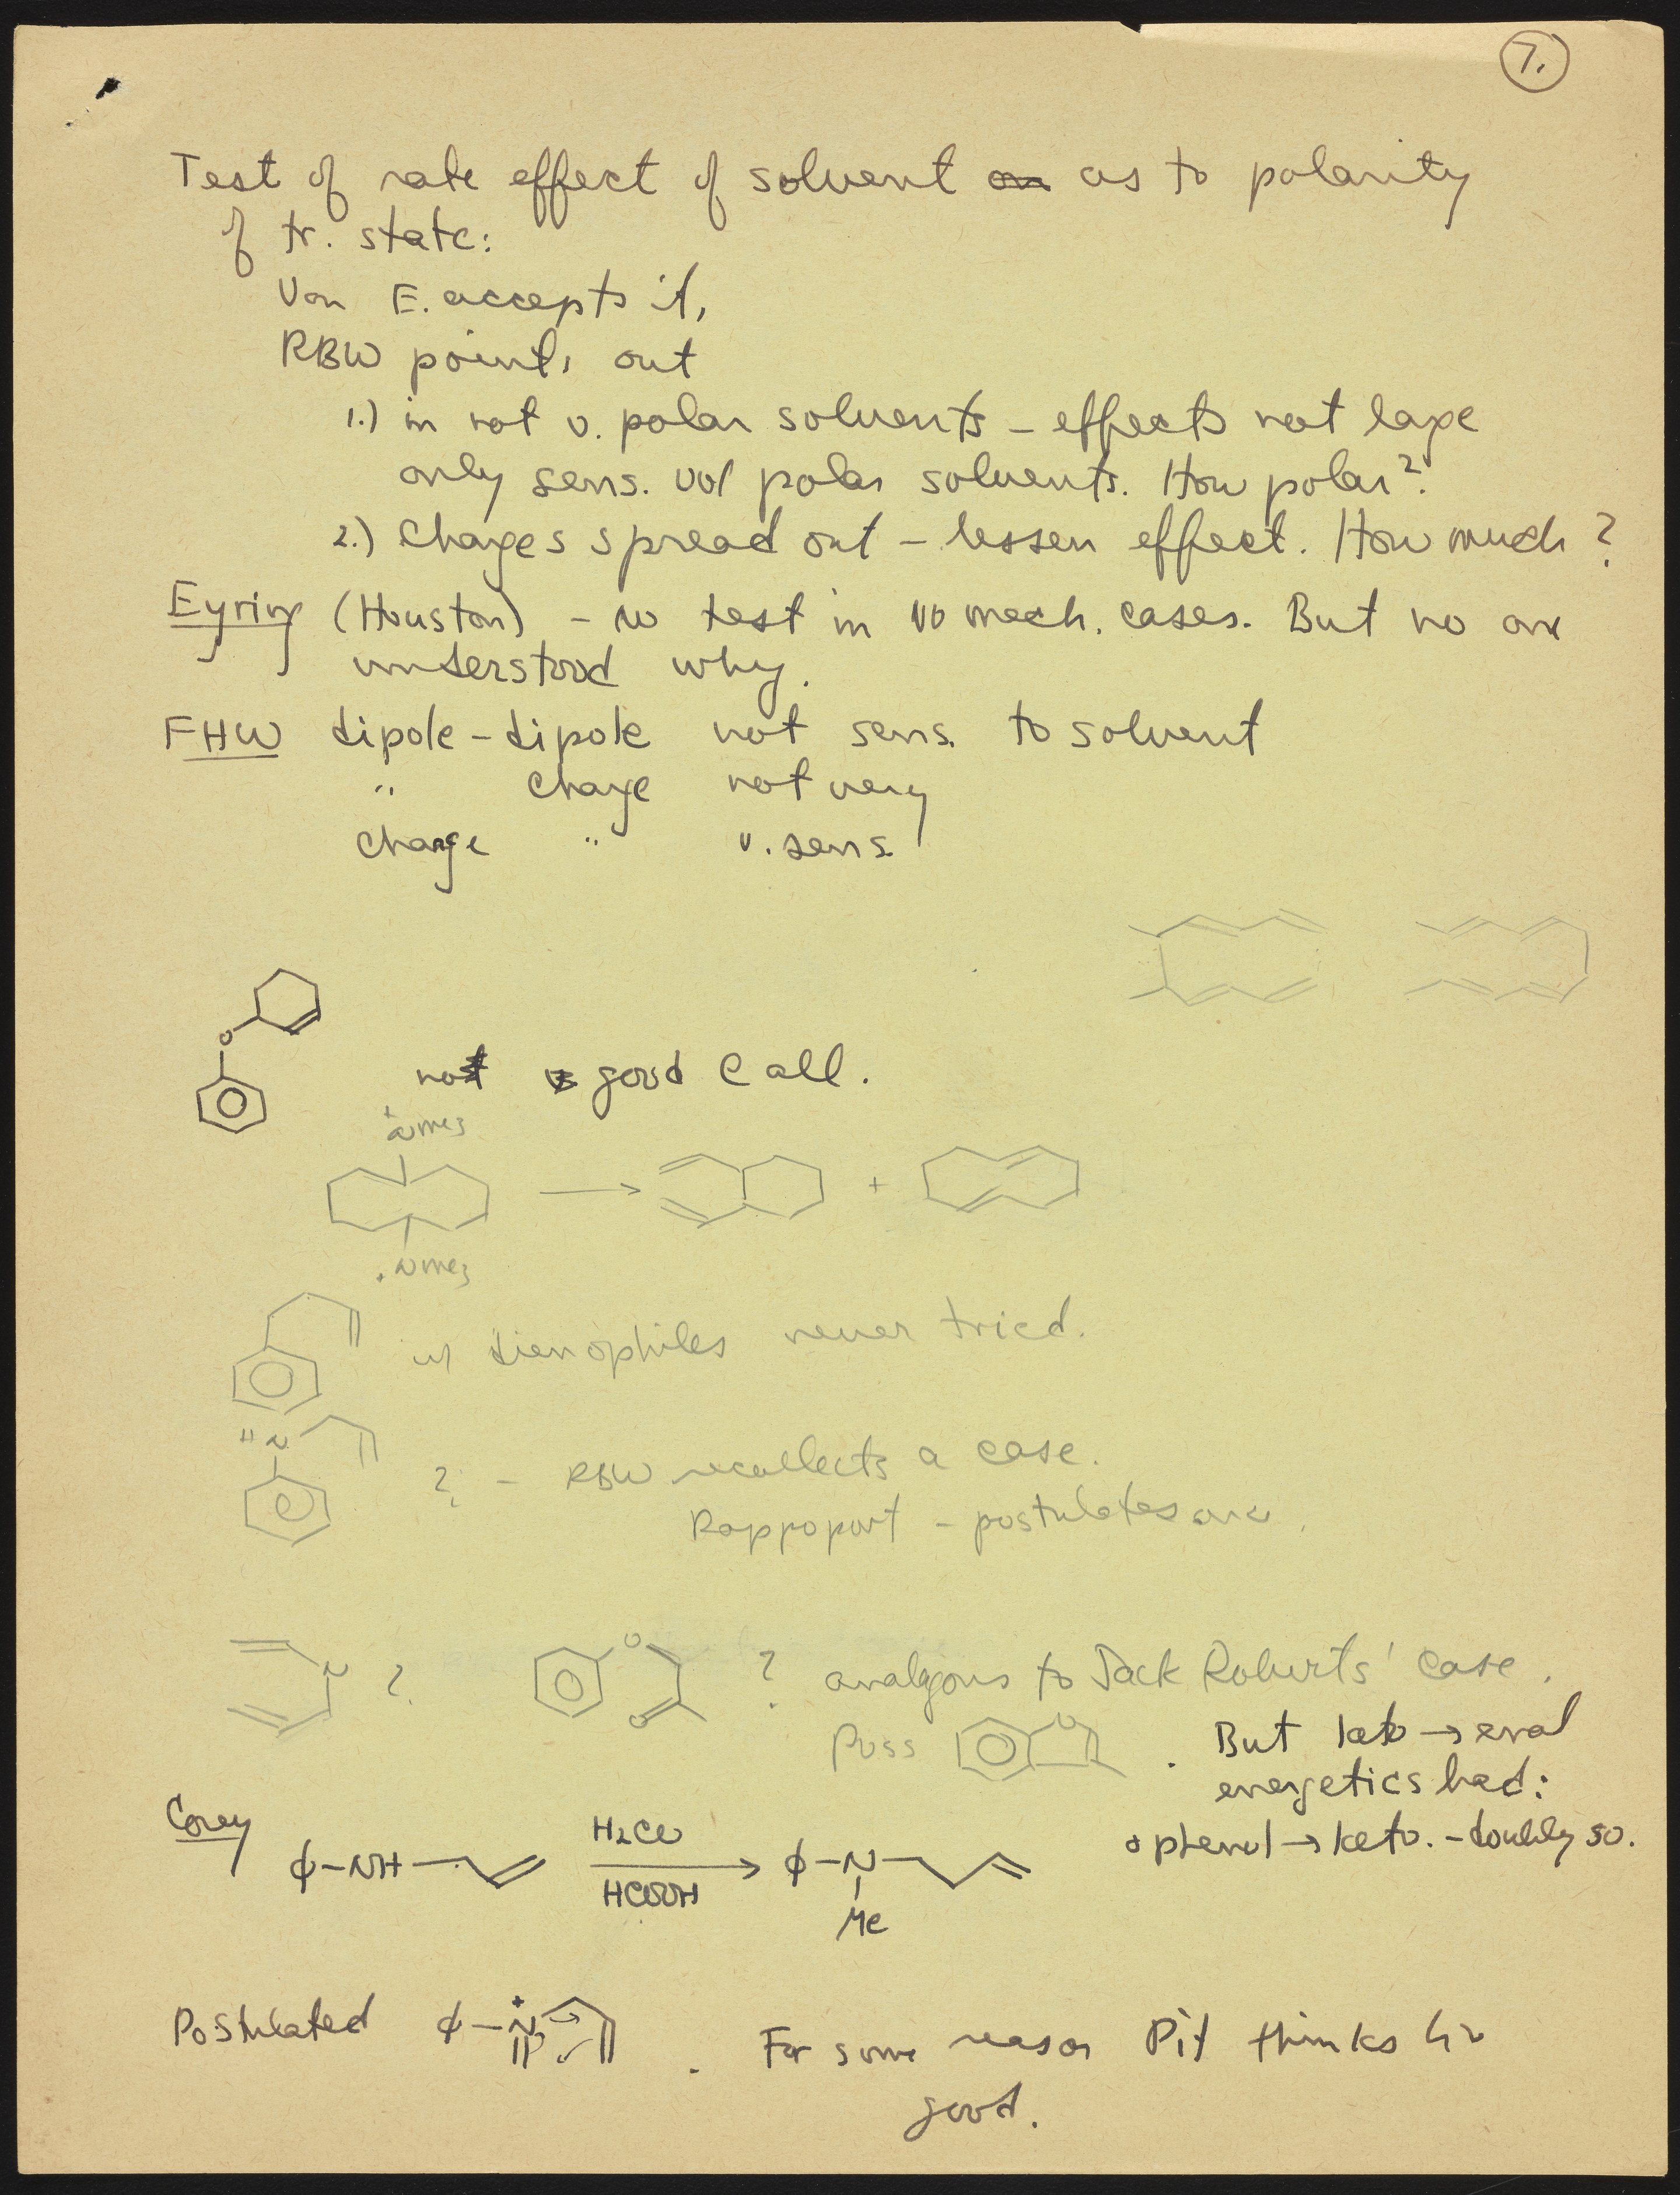 7.
Test of rate effect of solvent on as to polarity
of tr. state:
Von E. accepts it,
RBW points out
1.) in not v. polar solvents – effects not large
only sens. w/ polar solvents. How polar?
2.) Charges spread out – lessen effect. How much?
Eyring (Houston) – no test in no mech. cases. But no one
understood why.
FHW dipole-dipole not sens. to solvent
" charge not very
charge " v. sens.
O
not good call.
+NMe3
→ +
+NMe3
w/ dienophiles never tried.
N
? – RBW recollects a case.
Rappoport – postulates one.
N ? O O ? analogous to Jack Roberts' case.
Poss O . But keto → enol
energetics bad:
o phenol → keto. – doubly so.
Corey
ϕ–NH H2CO HCOOH → ϕ–N Me
Postulated ϕ–N+ . For some reason Pit thinks
good.